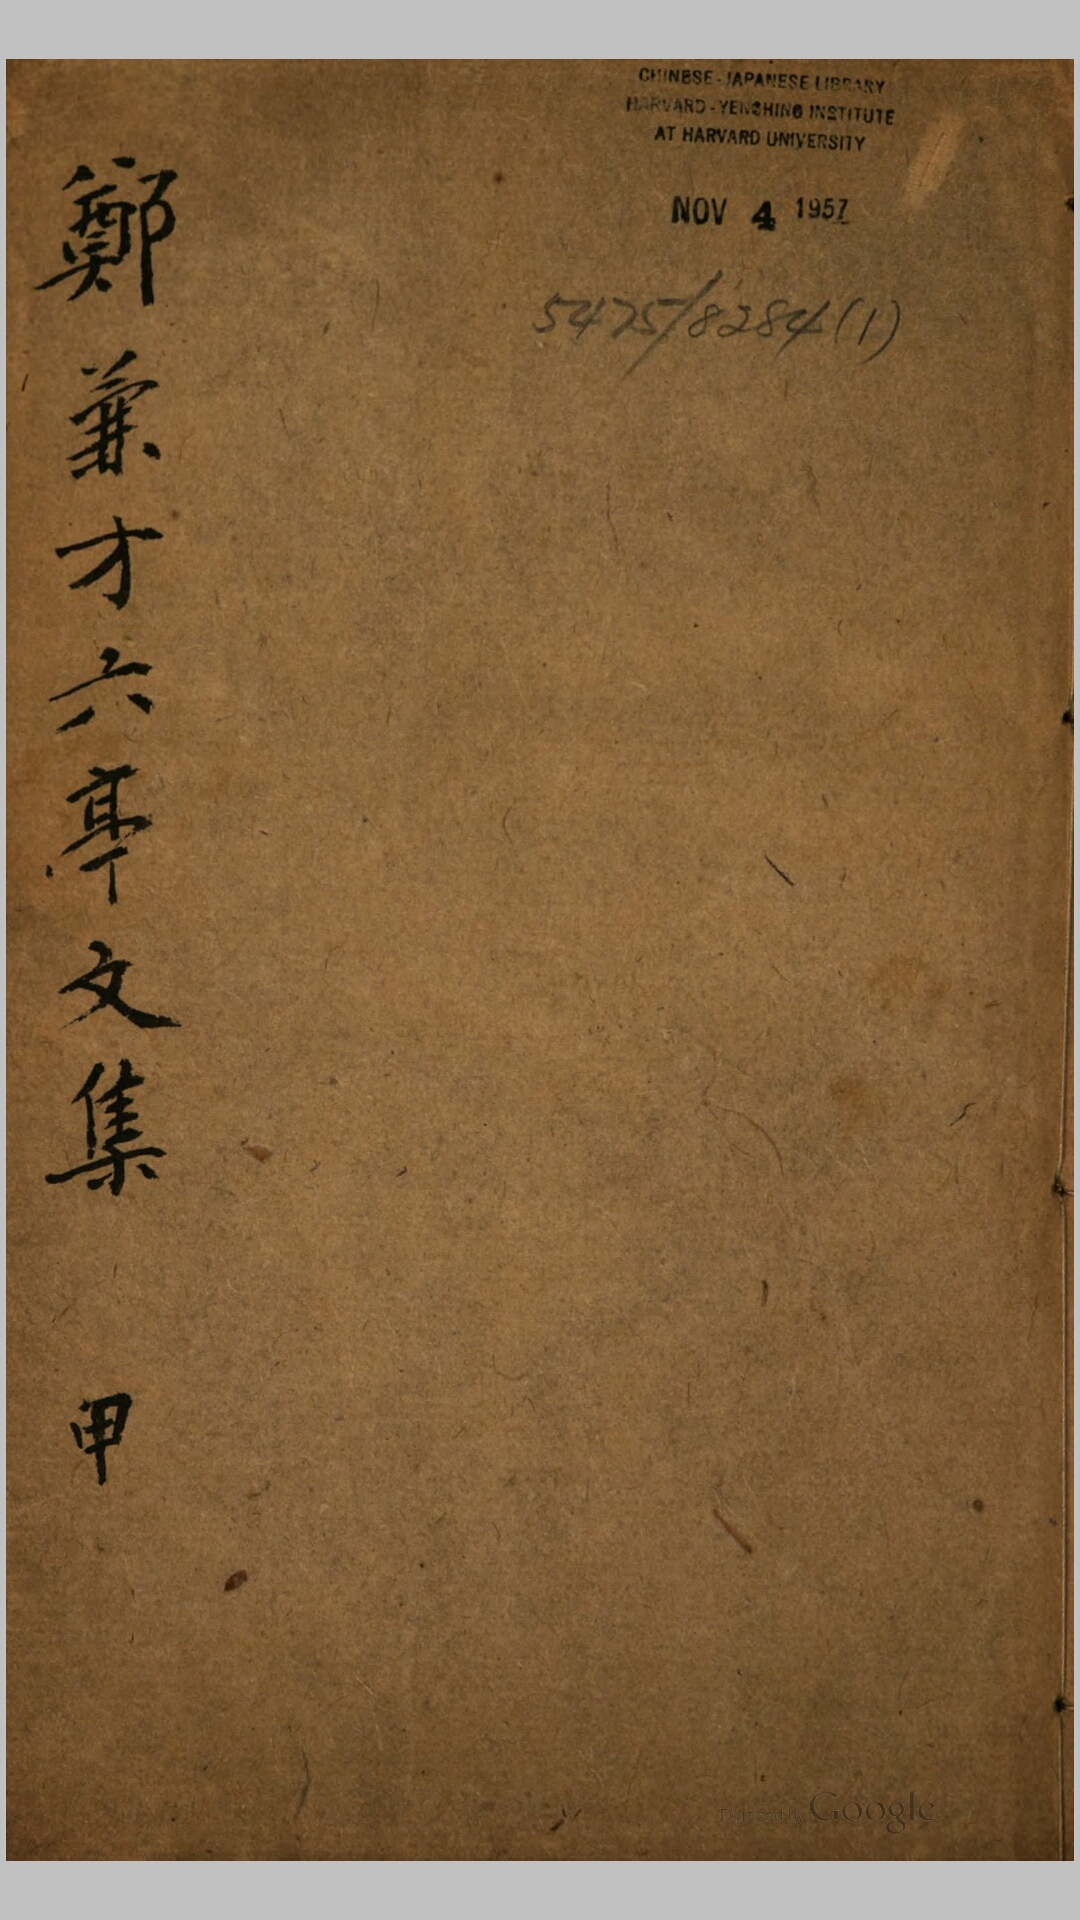 鄭兼才六亭文集 甲
CHINESE-JAPANESE LIBRARY
HARVARD-YENCHING INSTITUTE
AT HARVARD UNIVERSITY
NOV 4 1957
5475/8284(1)
Digitized by Google